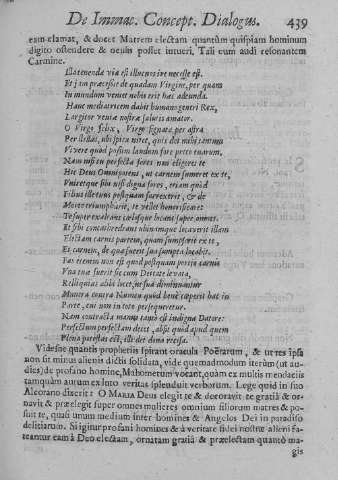 De Immac. Concept. Dialogus. 439
eam clamat, & docet Matrem electam quantùm quispiam hominum
digito ostendere & oculis posset intueri. Tali eum audi resonantem
Carmine.
Illa tenenda via est illuc ire necesse est.
Et jam præcessit de quadam Virgine, per quam
In mundum venit nobis erit hac adeunda.
Hanc mediatricem dabit humano generi Rex,
Largitor veniæ nostræ salutis amator.
O Virgo felix, Virgo signata per astra
Per stellas, ubi spica nitet, quis det mihi tantum
Vivere quod possim laudum fore præco tuarum,
Nam nisi tu perfecta fores non eligeret te
Hic Deus Omnipotens, ut carnem sumeret ex te,
Vniretque sibi nisi digna fores, etiam quòd
Filius ille tuus postquam surrexerit, & de
Morte triumpharit, te vellet honorificare
Te super exaltans cælosque locans super omnes.
Et sibi concathedrans ubi namque locaverit illam
Electam carnis partem, quam sumpserit ex te,
Et carnem, de qua fuerit sua sumpta locabit.
Fas etenim non est quòd postquam portio carnis
Vna tua fuerit sic cum Deitate levata,
Relliquias alibi locet, ne sua diminuantur
Munera contra Numen quòd benè cœperit hat in
Parte, cui non in toto perseveretur.
Nam contracta manus tanto est indigna Datore:
Perfectum perfecta decet, absit quòd apud quem
Plena potestas est, ille det dona recisa.
Videsne quantis prophetiis spirant oracula Poëtarum, & ut res ipsa
non sit minus alienis dictis solidata, vide quemadmodum iterùm (ut au-
dies) de profano homine, Mahometum vocant, quàm ex multis mendaciis
tamquàm aurum ex luto veritas splenduit verborum. Lege quid in suo
Alcorano dixerit: O MARIA Deus elegit te & decoravit te gratiâ & or-
navit & præelegit super omnes mulieres omnium filiorum matres & po-
suit te, quasi unum medium inter homines & Angelos Dei in paradiso
delitiarum. Si igitur profani homines & à veritate fidei nostræ alieni fa-
teantur eam à Deo electam, ornatam gratiâ & præelectam quantò ma-
gis